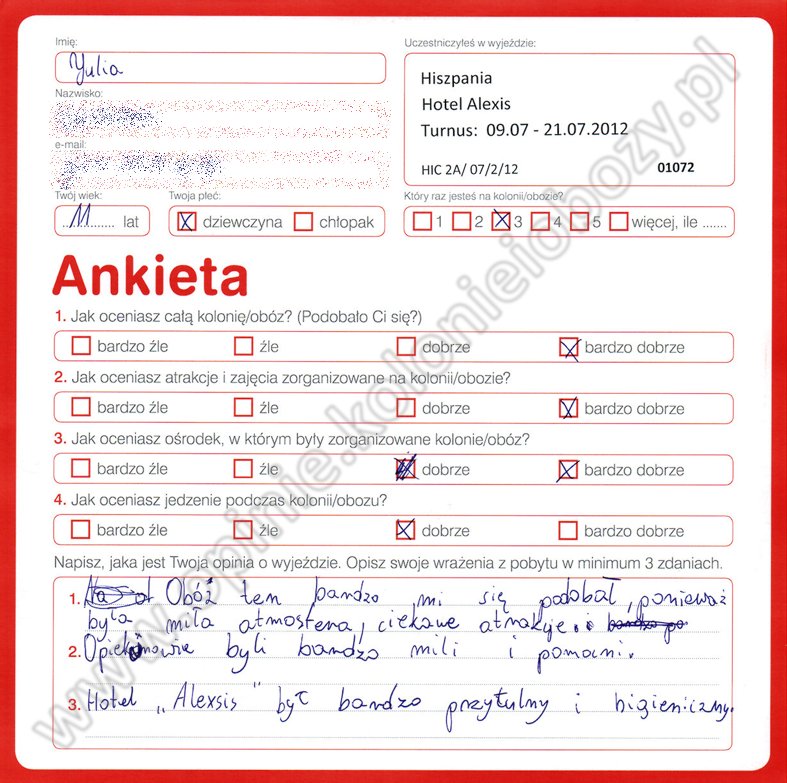 Imię:
Yulia
Uczestniczyłeś w wyjeździe:
Hiszpania
Hotel Alexis
Turnus: 09.07 - 21.07.2012
HIC 2A/ 07/2/12 01072
Nazwisko:
e-mail:
Twój wiek:
11 lat
Twoja płeć:
dziewczyna chłopak
Który raz jesteś na kolonii/obozie?
1 2 3 4 5 więcej, ile .......
Ankieta
1. Jak oceniasz całą kolonię/obóz? (Podobało Ci się?)
bardzo źle źle dobrze bardzo dobrze
2. Jak oceniasz atrakcje i zajęcia zorganizowane na kolonii/obozie?
bardzo źle źle dobrze bardzo dobrze
3. Jak oceniasz ośrodek, w którym były zorganizowane kolonie/obóz?
bardzo źle źle dobrze bardzo dobrze
4. Jak oceniasz jedzenie podczas kolonii/obozu?
bardzo źle źle dobrze bardzo dobrze
Napisz, jaka jest Twoja opinia o wyjeździe. Opisz swoje wrażenia z pobytu w minimum 3 zdaniach.
1. Obóz ten bardzo mi się podobał, ponieważ
była miła atmosfera, ciekawe atrakcje.
2. Opiekunowie byli bardzo mili i pomocni.
3. Hotel „Alexsis" był bardzo przytulny i higieniczny.
www.opinie.kolonieiobozy.pl